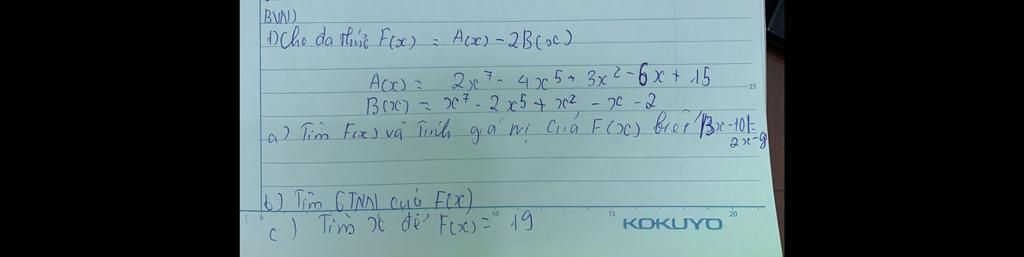 BVN)
1) Cho đa thức F(x) = A(x) - 2B(x)
A(x) = 2x⁷ - 4x⁵ + 3x² - 6x + 15
B(x) = x⁷ - 2x⁵ + x² - x - 2
a) Tìm F(x) và Tính giá trị của F(x) biết |3x-10| =
2x-9
b) Tìm GTNN của F(x)
c) Tìm x để F(x) = 19
0 10 15 20 25
KOKUYO